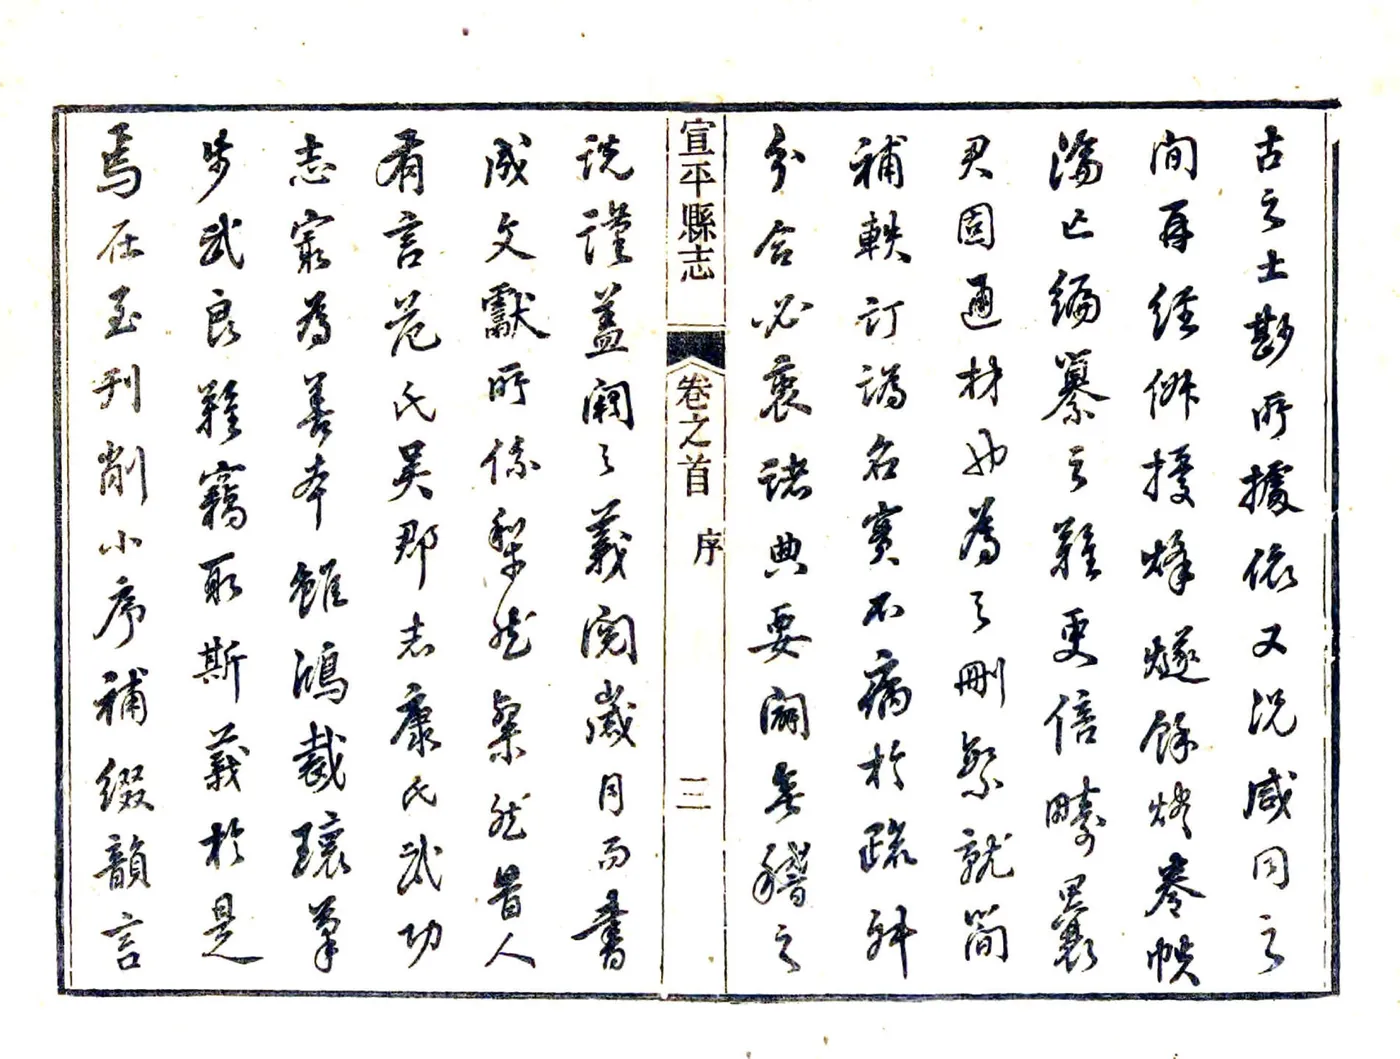 古之士斟所據依又況咸同之
間再經俶擾烽燧餘燼卷帙
淪亡編纂之難更倍疇曩
尹固通材也為之刪繁就簡
補軼訂譌名實不病於疏舛
分合必衷諸典要闢無稽之
宣平縣志 卷之首 序 三
說謹蓋闕之義閱歲月而書
成文獻所係犂然粲然昔人
有言范氏吳郡志康氏武功
志寔為善本雖鴻裁瓌筆
步武良難竊取斯義於是
焉在至刊削小序補綴韻言